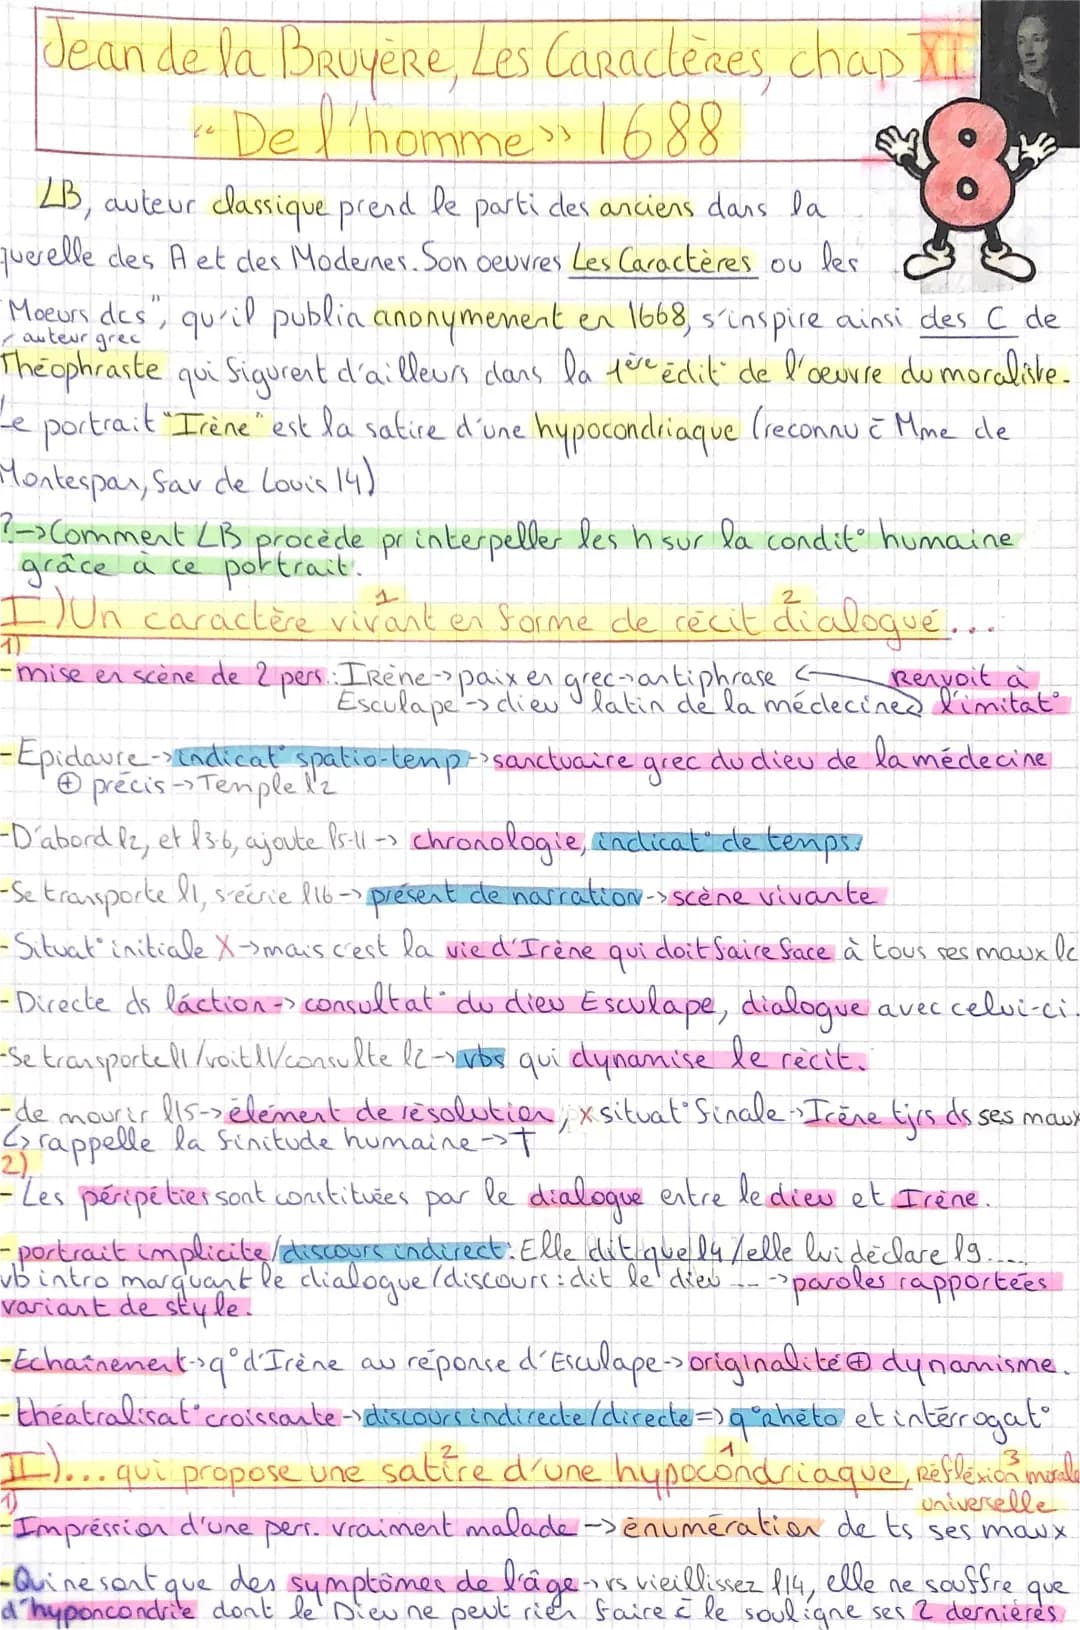 Jean de la BRUyèRE, Les CaRactèRes, chap XI
"De l'homme" 1688
LB, auteur classique prend le parti des anciens dans la
querelle des A et des Modernes. Son oeuvres Les Caractères ou les
"Moeurs dcs", qu'il publia anonymement en 1668, s'inspire ainsi des C de
auteur grec
Théophraste qui figurent d'ailleurs dans la 1ère édit° de l'oeuvre du moraliste.
Le portrait "Irène" est la satire d'une hypocondriaque (reconnu c̄ Mme de
Montespan, fav de Louis 14)
?->Comment LB procède pr interpeller les h sur la condit° humaine
grâce à ce portrait.
I) Un caractère vivant en forme de récit dialogué...
1 2
1)
-mise en scène de 2 pers.: IRène->paix en grec->antiphrase Renvoit à
Esculape->dieu latin de la médecine l'imitat°
-Epidaure->indicat° spatio-temp->sanctuaire grec du dieu de la médecine
⊕ précis->Temple l2
-D'abord l2, et l3-6, ajoute l5-11-> chronologie, indicat° de temps.
-Se transporte l1, s'écrie l16->présent de narration->scène vivante
-Situat° initiale X->mais c'est la vie d'Irène qui doit faire face à tous ses maux lc
-Directe ds láction-> consultat° du dieu Esculape, dialogue avec celui-ci.
-Se transporte l1/voit l1/consulte l2->vbs qui dynamise le récit.
-de mourir l15->élément de résolution, x situat° finale->Irène tjrs ds ses maux
↳ rappelle la finitude humaine->†
2)
-Les péripéties sont constituées par le dialogue entre le dieu et Irène.
-portrait implicite/discours indirect: Elle dit que l4/elle lui déclare l9....
vb intro marquant le dialogue/discours: dit le dieu ...->paroles rapportées
variant de style.
-Echaînement->q° d'Irène au réponse d'Esculape->originalité ⊕ dynamisme.
-théatralisat° croissante->discours indirecte/directe=>q° rhéto et intérrogat°
II)... qui propose une satire d'une hypocondriaque, Réfléxion morale
2 1 3
universelle
1)
-Impréssion d'une pers. vraiment malade->énumération de ts ses maux
-Qui ne sont que des symptômes de l'âge->vs vieillissez l14, elle ne souffre que
d'hyponcondrie dont le Dieu ne peut rien faire c̄ le souligne ses 2 dernières